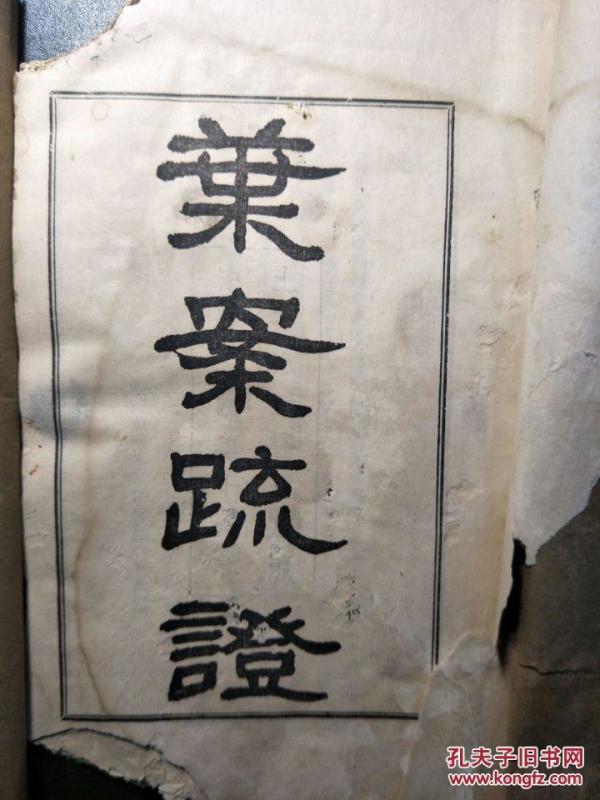 葉案疏證
孔夫子旧书网
www.kongfz.com